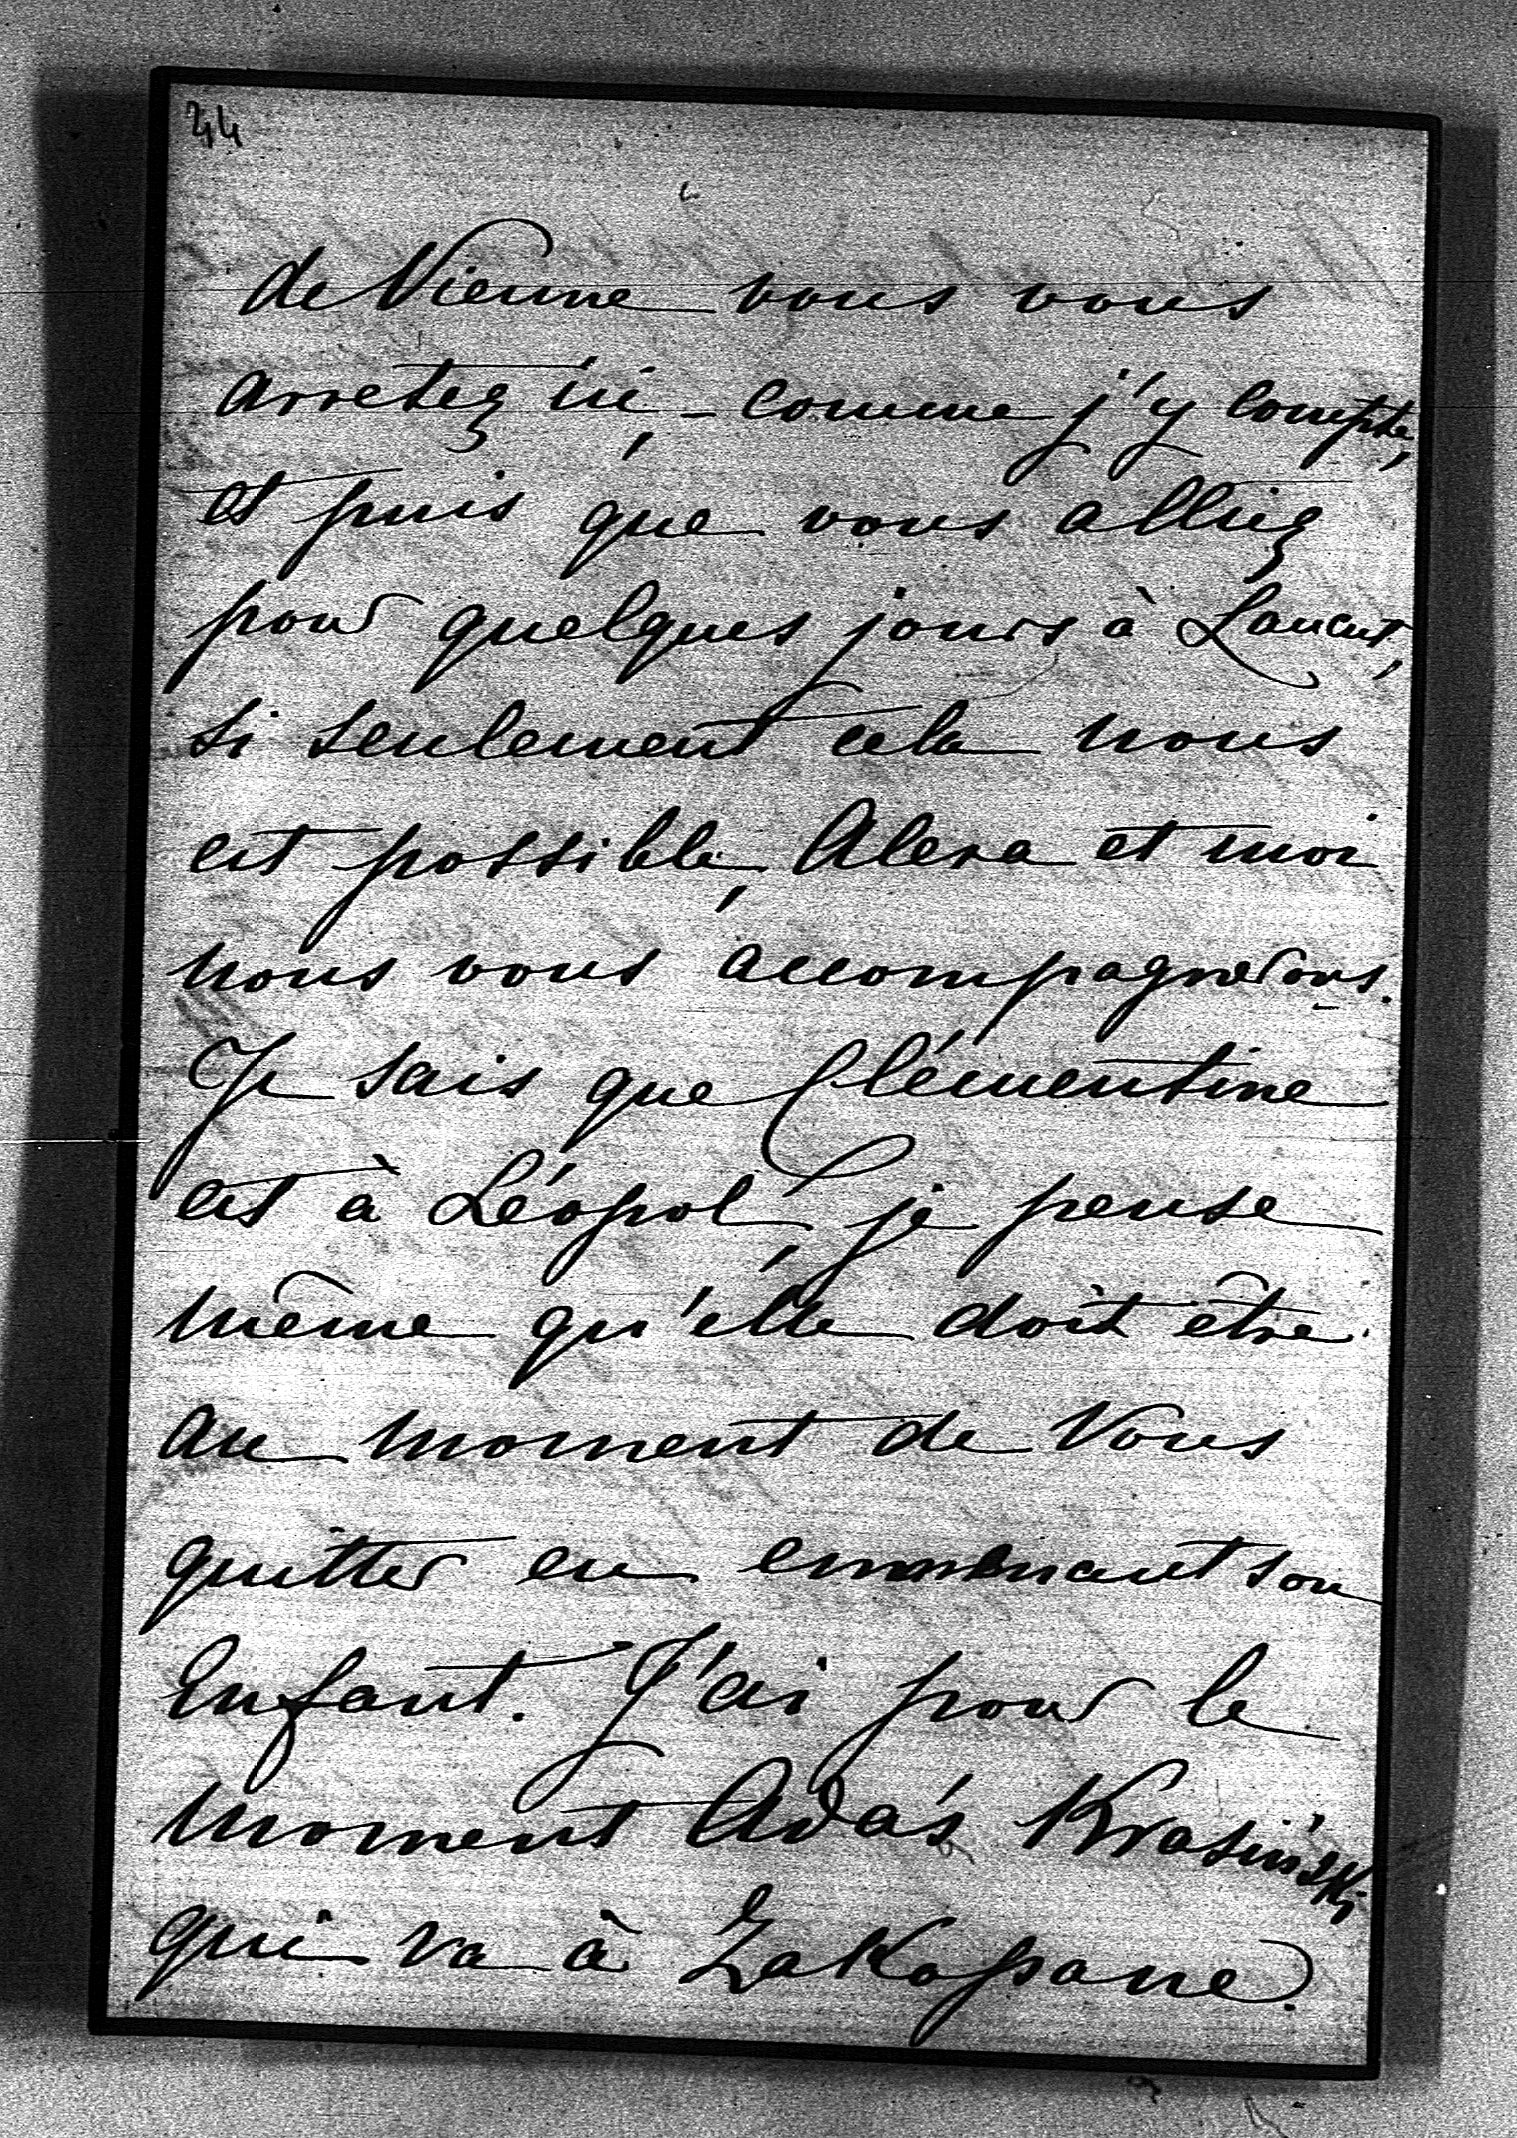 44
de Vienne vous vous
arretez ici, - comme j'y compte,
et puis que vous alliez
pour quelques jours à Lancut,
si seulement cela nous
est possible, Alexa et moi
nous vous accompagnerons.
Je sais que Clémentine
est à Léopol, je pense
même qu'elle doit être
au moment de Vous
quitter en emmenant son
Enfant. J'ai pour le
moment Adaś Krasiński
qui va à Zakopane.